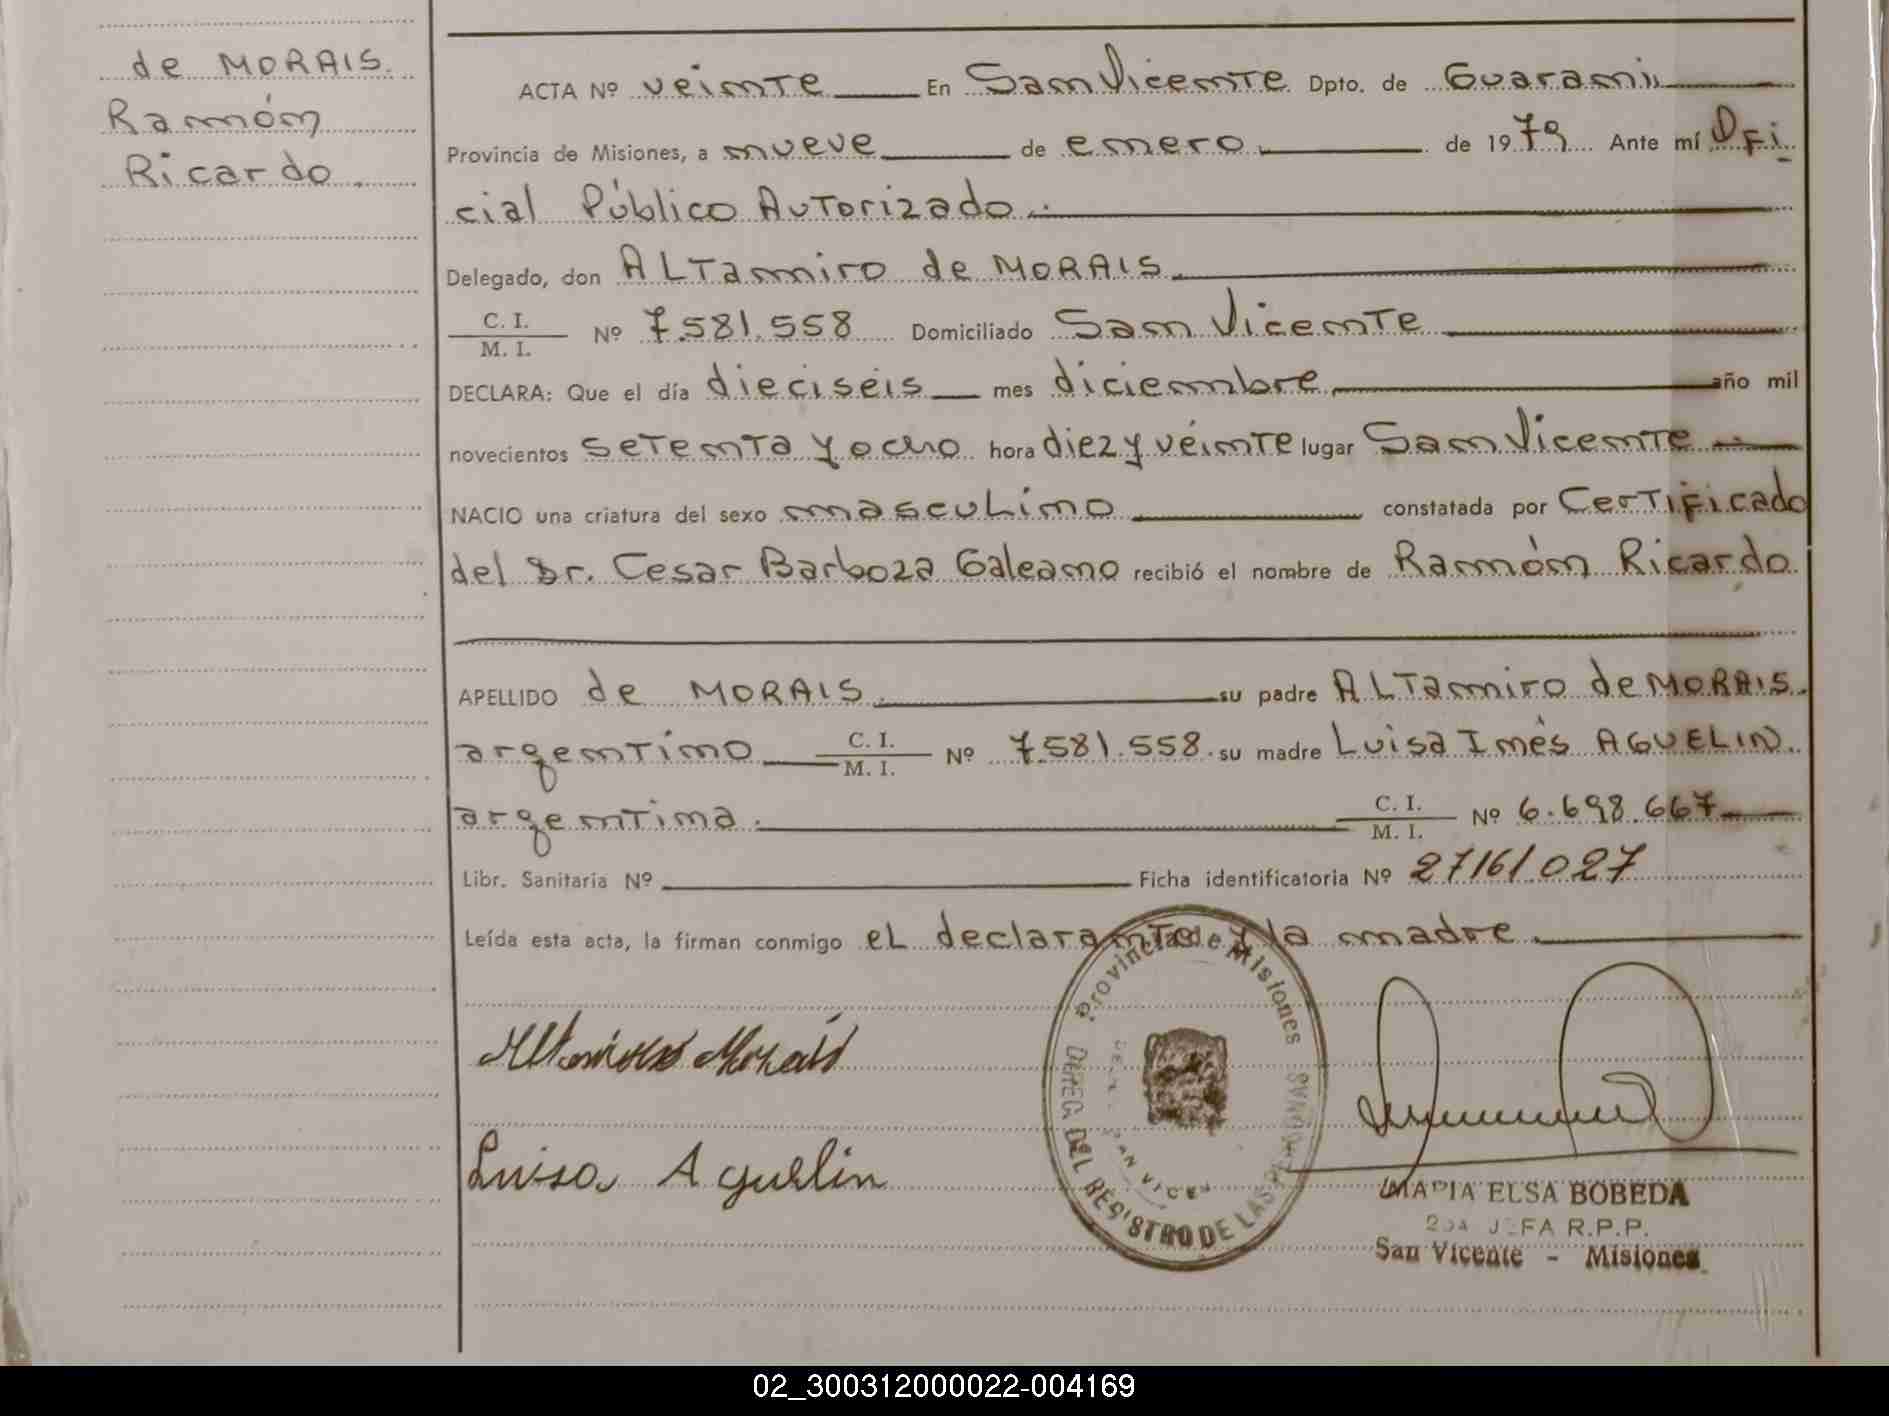 de MORAIS.
Ramón
Ricardo.
ACTA Nº veinte En San Vicente Dpto. de Guaraní
Provincia de Misiones, a nueve de enero de 1979 Ante mí Ofi
cial Público Autorizado.
Delegado, don ALTamiro de MORAIS
C. I.
M. I. Nº 7.581.558 Domiciliado San Vicente
DECLARA: Que el día dieciseis mes diciembre año mil
novecientos setenta y ocho hora diez y veinte lugar San Vicente
NACIO una criatura del sexo masculino constatada por Certificado
del Dr. Cesar Barboza Galeano recibió el nombre de Ramón Ricardo
APELLIDO de MORAIS su padre ALTamiro de MORAIS.
argentino C. I.
M. I. Nº 7.581.558. su madre Luisa Inés AGUELIN.
argentina. C. I.
M. I. Nº 6.698.667
Libr. Sanitaria Nº Ficha identificatoria Nº 27161027
Leída esta acta, la firman conmigo el declarante y la madre.
Altamiro Morais
Luisa Aguelin
Provincia de Misiones
DIREC. DEL REGISTRO DE LAS PERSONAS
SAN VICE
MARIA ELSA BOBEDA
2DA JEFA R.P.P.
San Vicente - Misiones
02_300312000022-004169